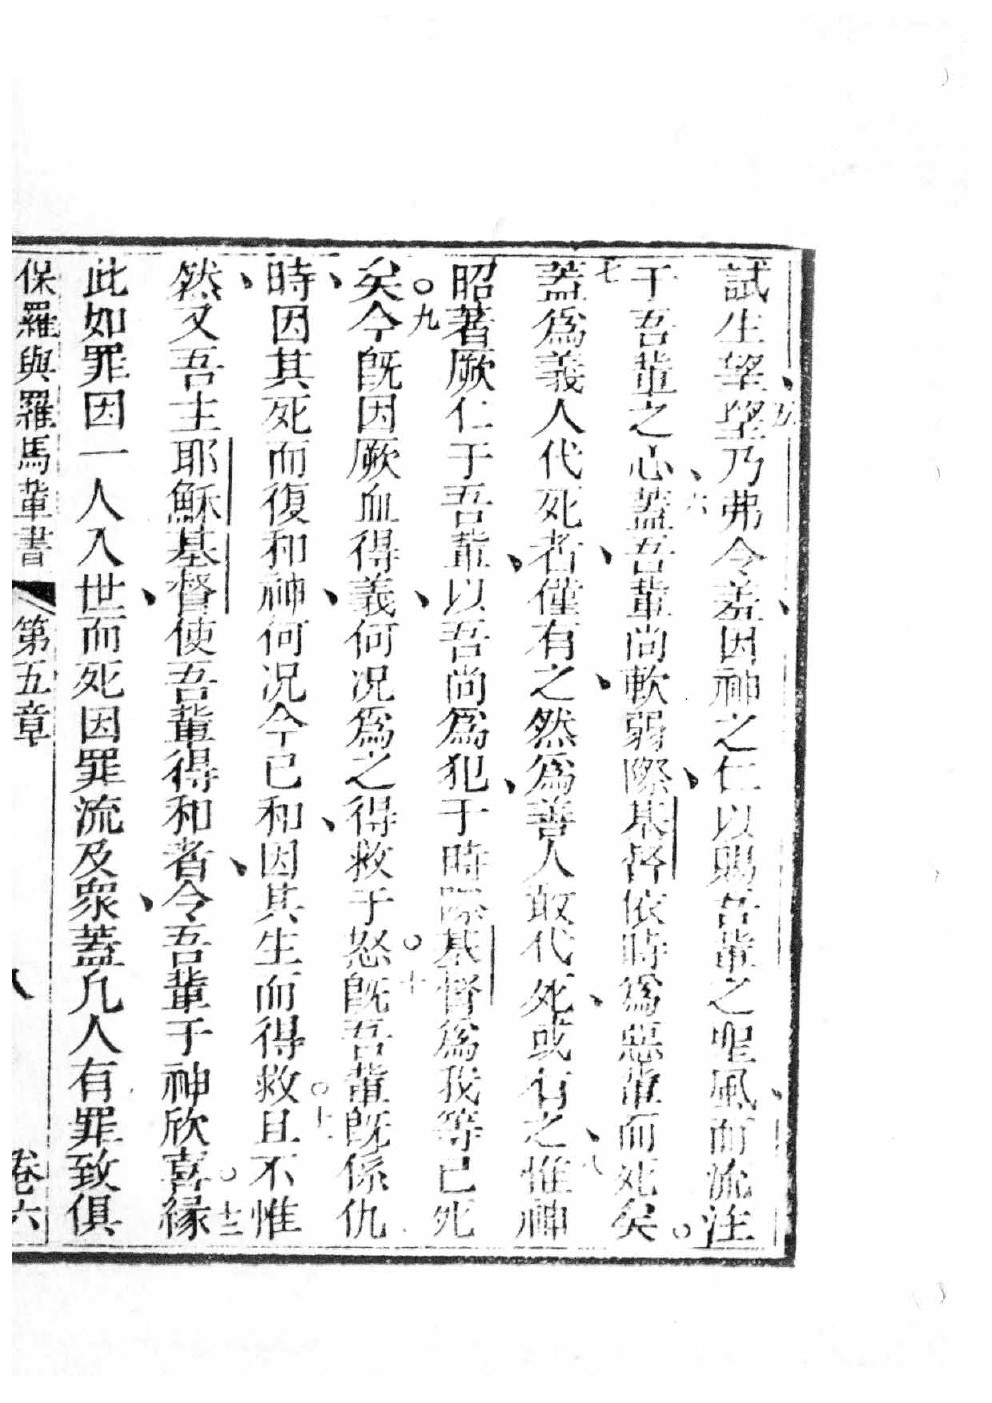 試生望、五望乃弗令羞、因神之仁以賜吾輩之聖風、而流注
于吾輩之心、六蓋吾輩尚軟弱際、基督依時爲惡輩而死矣。
七蓋爲義人代死者、僅有之、然爲善人敢代死、或有之、八惟神
昭著厥仁于吾輩、以吾尚爲犯、于時際基督爲我等已死
矣。九今既因厥血得義、何况爲之得救于怒。十既吾輩既係仇
時、因其死而復和神、何况今已和、因其生而得救。十一且不惟
然、又吾主耶穌基督使吾輩得和者、今吾輩于神欣喜。十二緣
此如罪因一人入世、而死因罪流及衆、蓋凡人有罪致俱
保羅與羅馬輩書 第五章 八 卷六